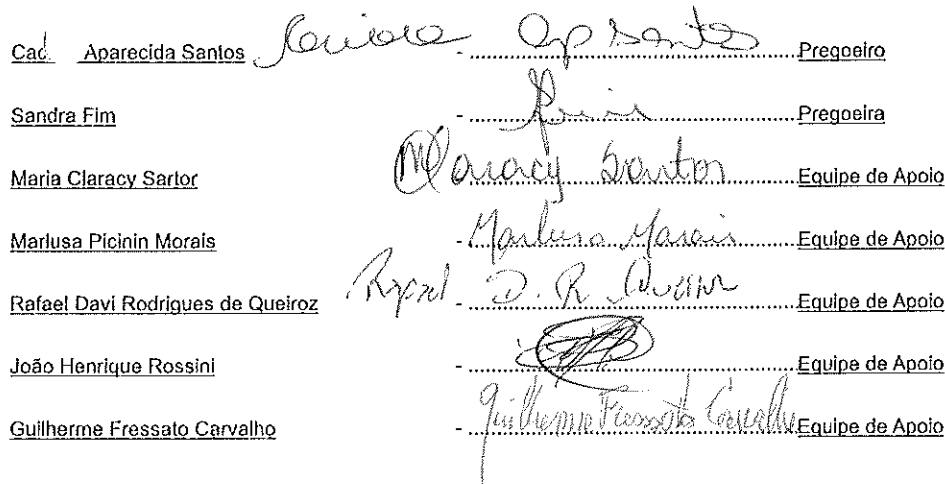 Cad. Aparecida Santos - Ap Santos Pregoeiro
Sandra Fim - Pregoeira
Maria Claracy Sartor Claracy Sartor Equipe de Apoio
Marlusa Picinin Morais - Marlusa Morais Equipe de Apoio
Rafael Davi Rodrigues de Queiroz - Rafael D. R. Queiroz Equipe de Apoio
João Henrique Rossini - Equipe de Apoio
Guilherme Fressato Carvalho - Guilherme Fressato Carvalho Equipe de Apoio